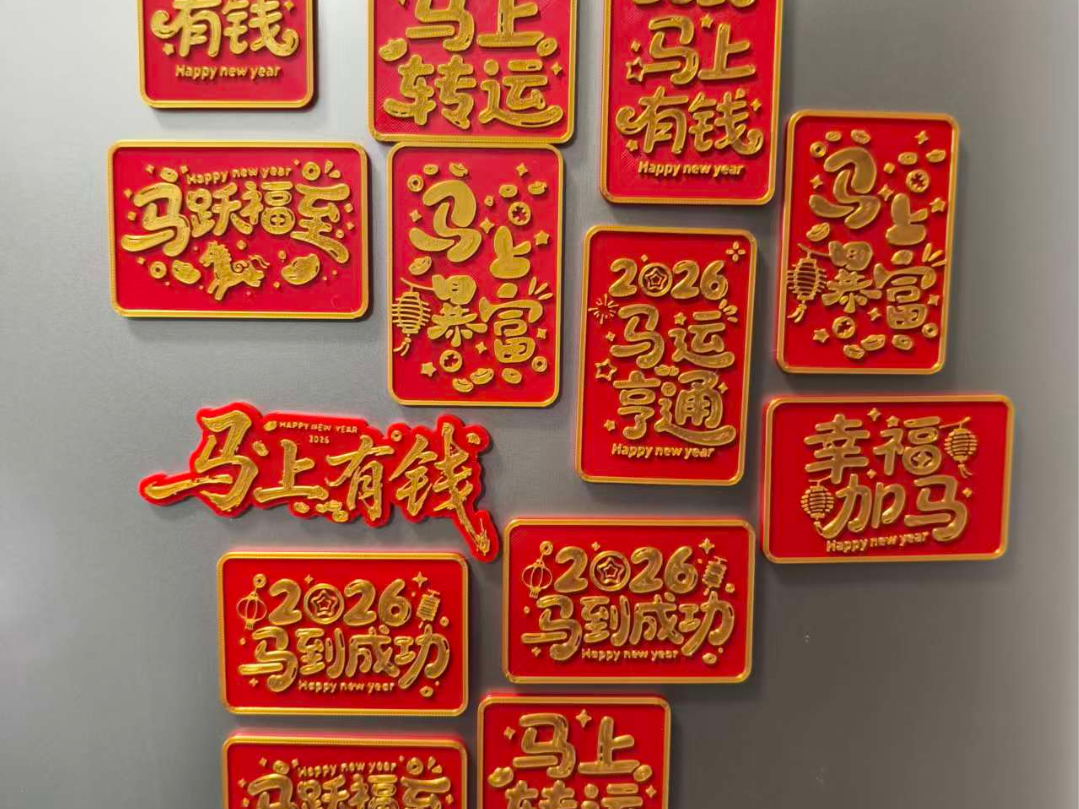 有钱
Happy new year
马上
转运
2026
马上
有钱
Happy new year
Happy new year
马跃福至
马上
暴富
2026
马运
亨通
Happy new year
马上
暴富
HAPPY NEW YEAR
2026
马上有钱
幸福
加马
Happy new year
2026
马到成功
Happy new year
2026
马到成功
Happy new year
Happy new year
马跃福至
马上
转运